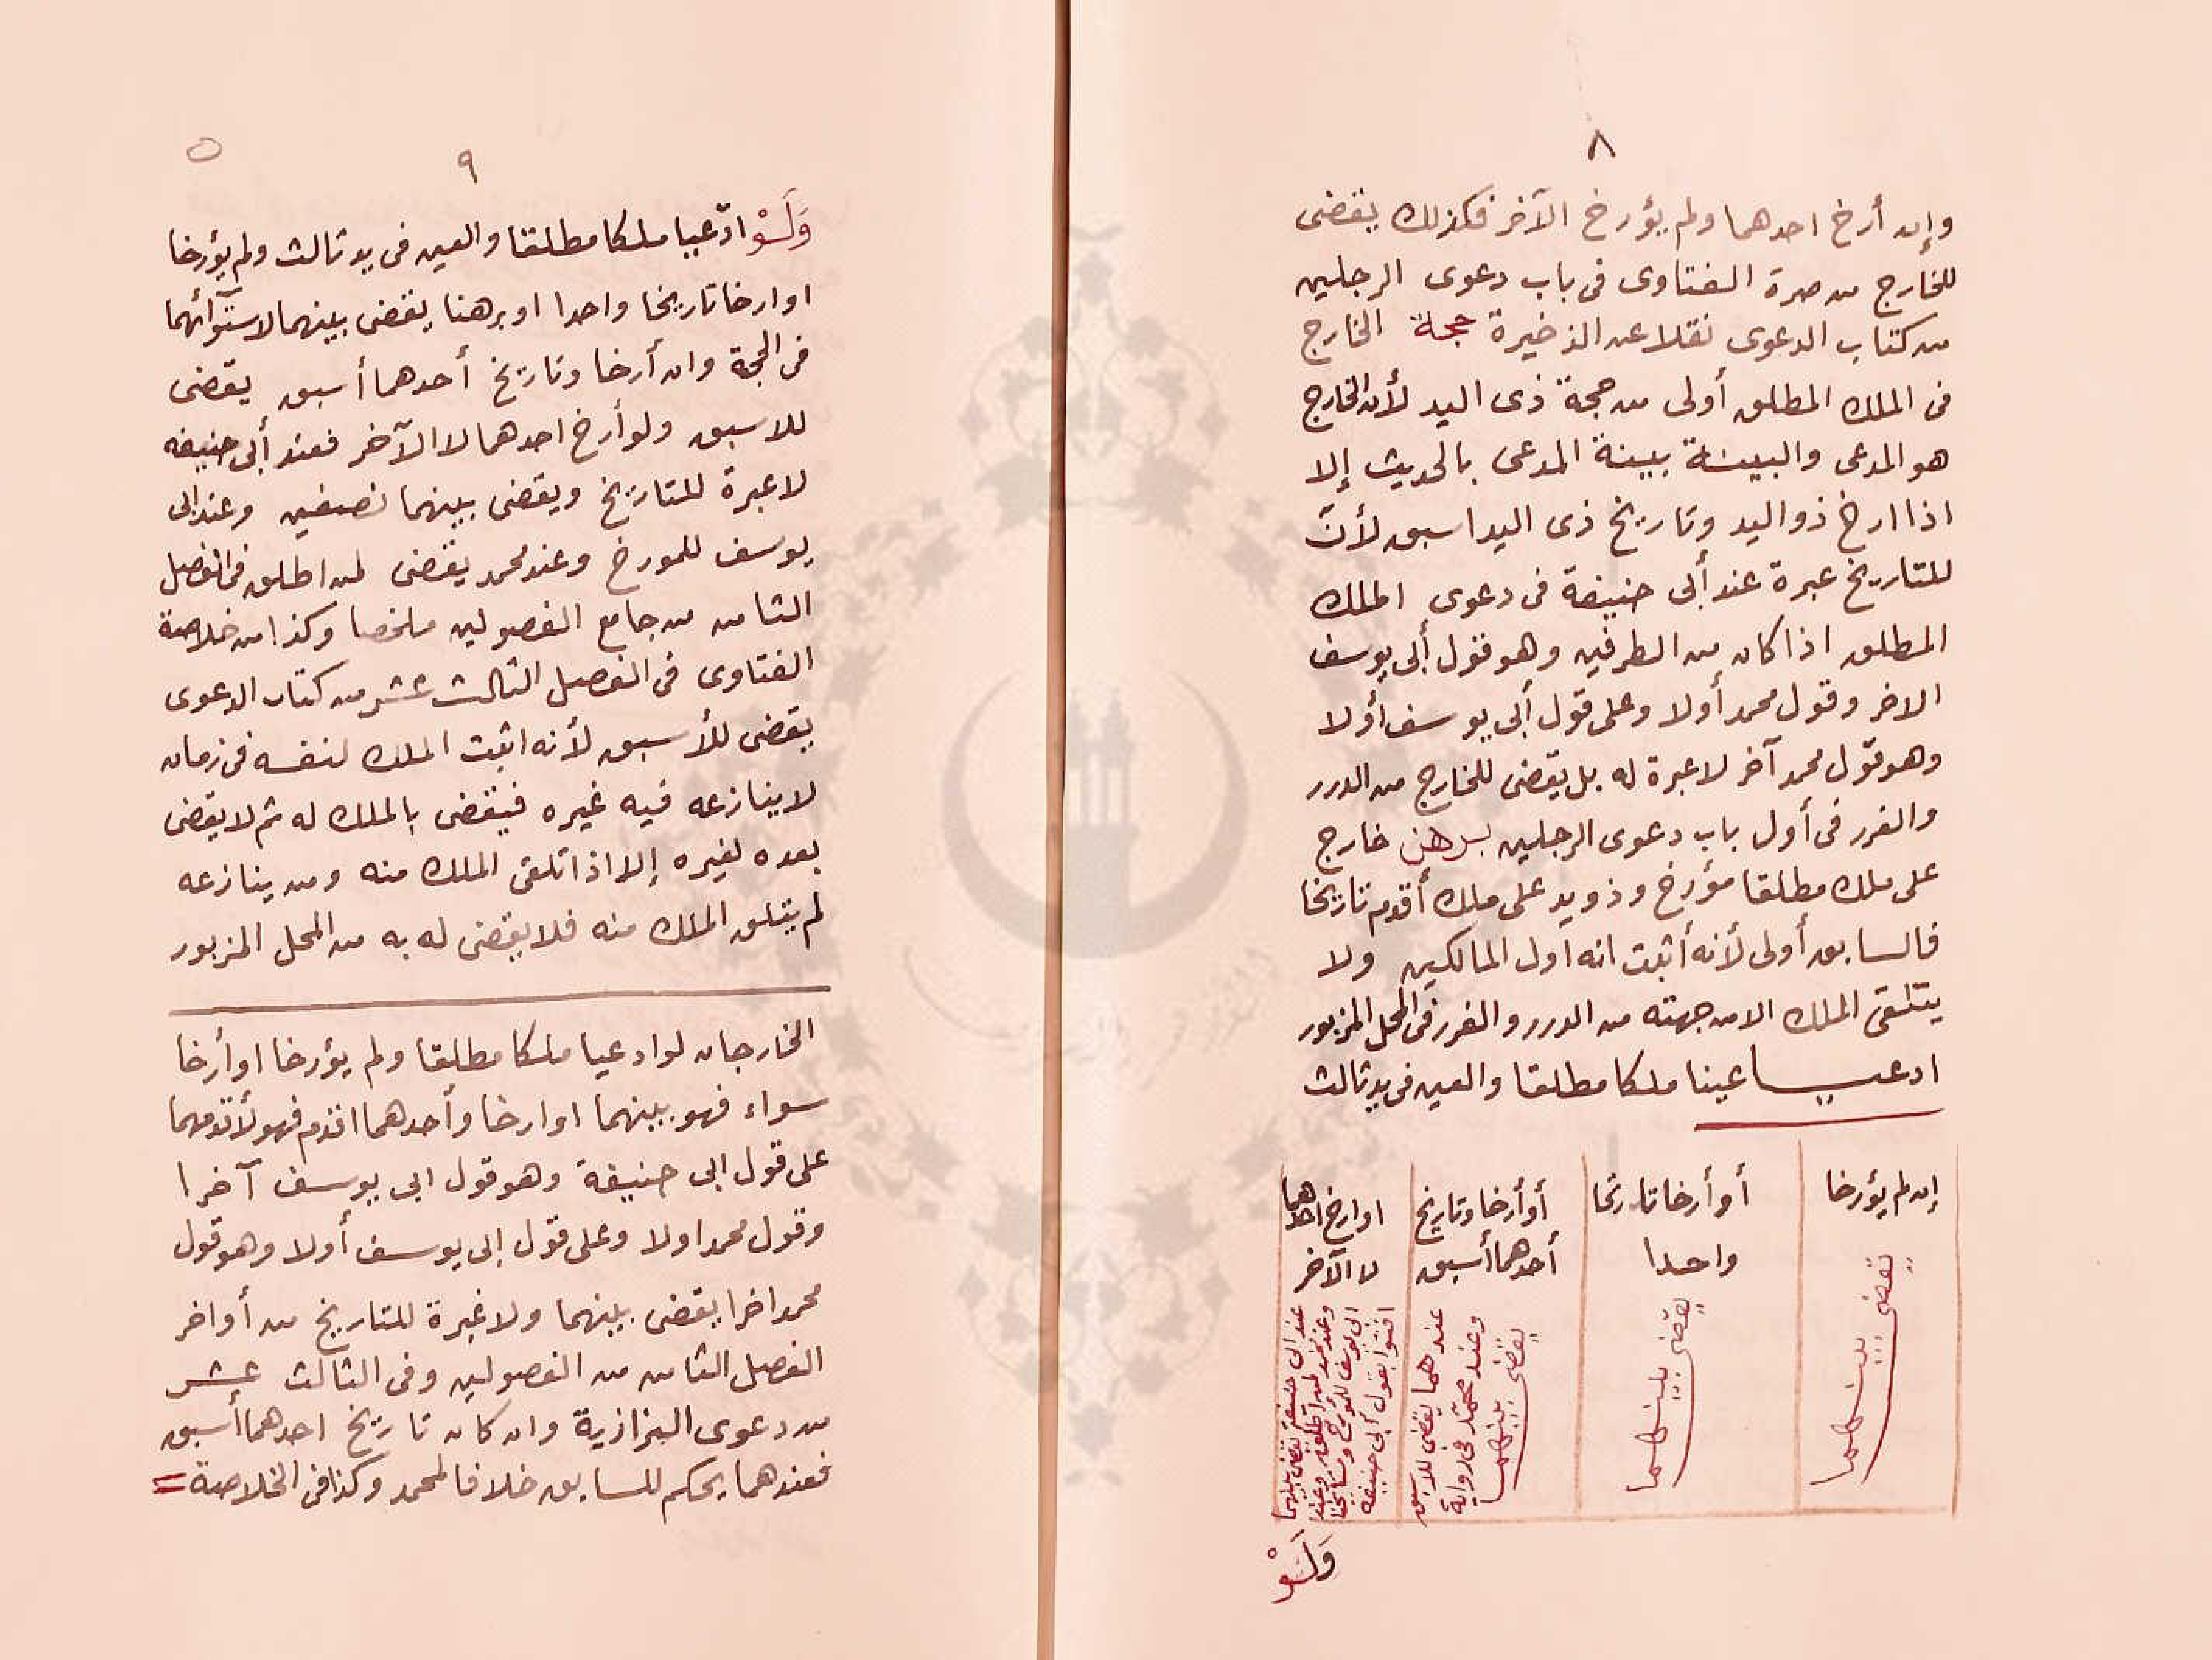 ٨
وإن أرخ احدهما ولم يؤرخ الآخر فكذلك يقضى
للخارج من صرة الفتاوى فى باب دعوى الرجلين
من كتاب الدعوى نقلا عن الذخيرة حجة الخارج
فى الملك المطلق أولى من حجة ذى اليد لأن الخارج
هو المدعى والبينة بينة المدعى بالحديث إلا
اذا ارخ ذو اليد وتاريخ ذى اليد اسبق لأنّ
للتاريخ عبرة عند أبى حنيفة فى دعوى الملك
المطلق اذا كان من الطرفين وهو قول أبى يوسف
الاخر وقول محمد أولا وعلى قول أبى يوسف أولا
وهو قول محمد آخر لا عبرة له بل يقضى للخارج من الدرر
والغرر فى أول باب دعوى الرجلين برهن خارج
على ملك مطلقا مؤرخ وذو يد على ملك أقدم تاريخا
فالسابق أولى لأنه أثبت انه اول المالكين ولا
يتلقى الملك الا من جهته من الدرر والغرر فى المحل المزبور
ادعيا عينا ملكا مطلقا والعين فى يد ثالث
إن لم يؤرخا
يقضى بينهما
أو أرخا تاريخا
واحدا
يقضى بينهما
أو أرخا وتاريخ
أحدهما أسبق
عندهما يقضى للاسبق
وعند محمد فى رواية
يقضى بينهما
او ارخ احدهما
لا الآخر
عند ابى حنيفة يقضى بينهما
وعند محمد لمن اطلق وعند
ابى يوسف للمؤرخ ومشايخنا
افتوا بقول ابى حنيفه
وَلَوْ
٩
وَلَوْ ادّعيا ملكا مطلقا والعين فى يد ثالث ولم يؤرخا
او ارخا تاريخا واحدا او برهنا يقضى بينهما لاستوآئهما
فى الحجة وان أرخا وتاريخ أحدهما أسبق يقضى
للاسبق ولو أرخ احدهما لا الآخر فعند أبى حنيفه
لا عبرة للتاريخ ويقضى بينهما نصفين وعند ابى
يوسف للمورخ وعند محمد يقضى لمن اطلق فى الفصل
الثامن من جامع الفصولين ملخصا وكذا من خلاصة
الفتاوى فى الفصل الثالث عشر من كتاب الدعوى
يقضى للأسبق لأنه اثبت الملك لنفسه فى زمان
لا ينازعه فيه غيره فيقضى بالملك له ثم لا يقضى
بعده لغيره إلا اذا تلقى الملك منه ومن ينازعه
لم يتلق الملك منه فلا يقضى له به من المحل المزبور
الخارجان لو ادعيا ملكا مطلقا ولم يؤرخا او أرخا
سواء فهو بينهما او ارخا وأحدهما اقدم فهو لأقدمهما
على قول ابى حنيفة وهو قول ابى يوسف آخرا
وقول محمد اولا وعلى قول ابى يوسف أولا وهو قول
محمد اخرا يقضى بينهما ولا غبرة للتاريخ من أواخر
الفصل الثامن من الفصولين وفى الثالث عشر
من دعوى البزازية وان كان تاريخ احدهما أسبق
فعندهما يحكم للسابق خلافا لمحمد وكذا فى الخلاصة =